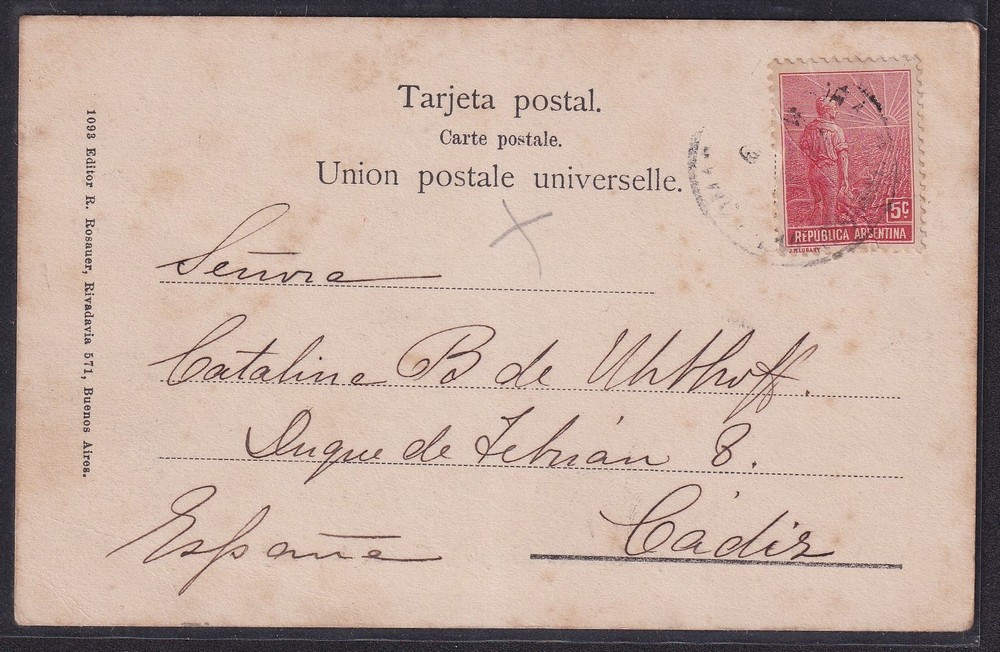 Tarjeta postal.
Carte postale.
Union postale universelle.
5c
REPUBLICA ARGENTINA
Señora
Catalina B de Uhthoff.
Duque de Tetuán 8.
Cádiz
España
1093 Editor R. Rosauer, Rivadavia 571, Buenos Aires.